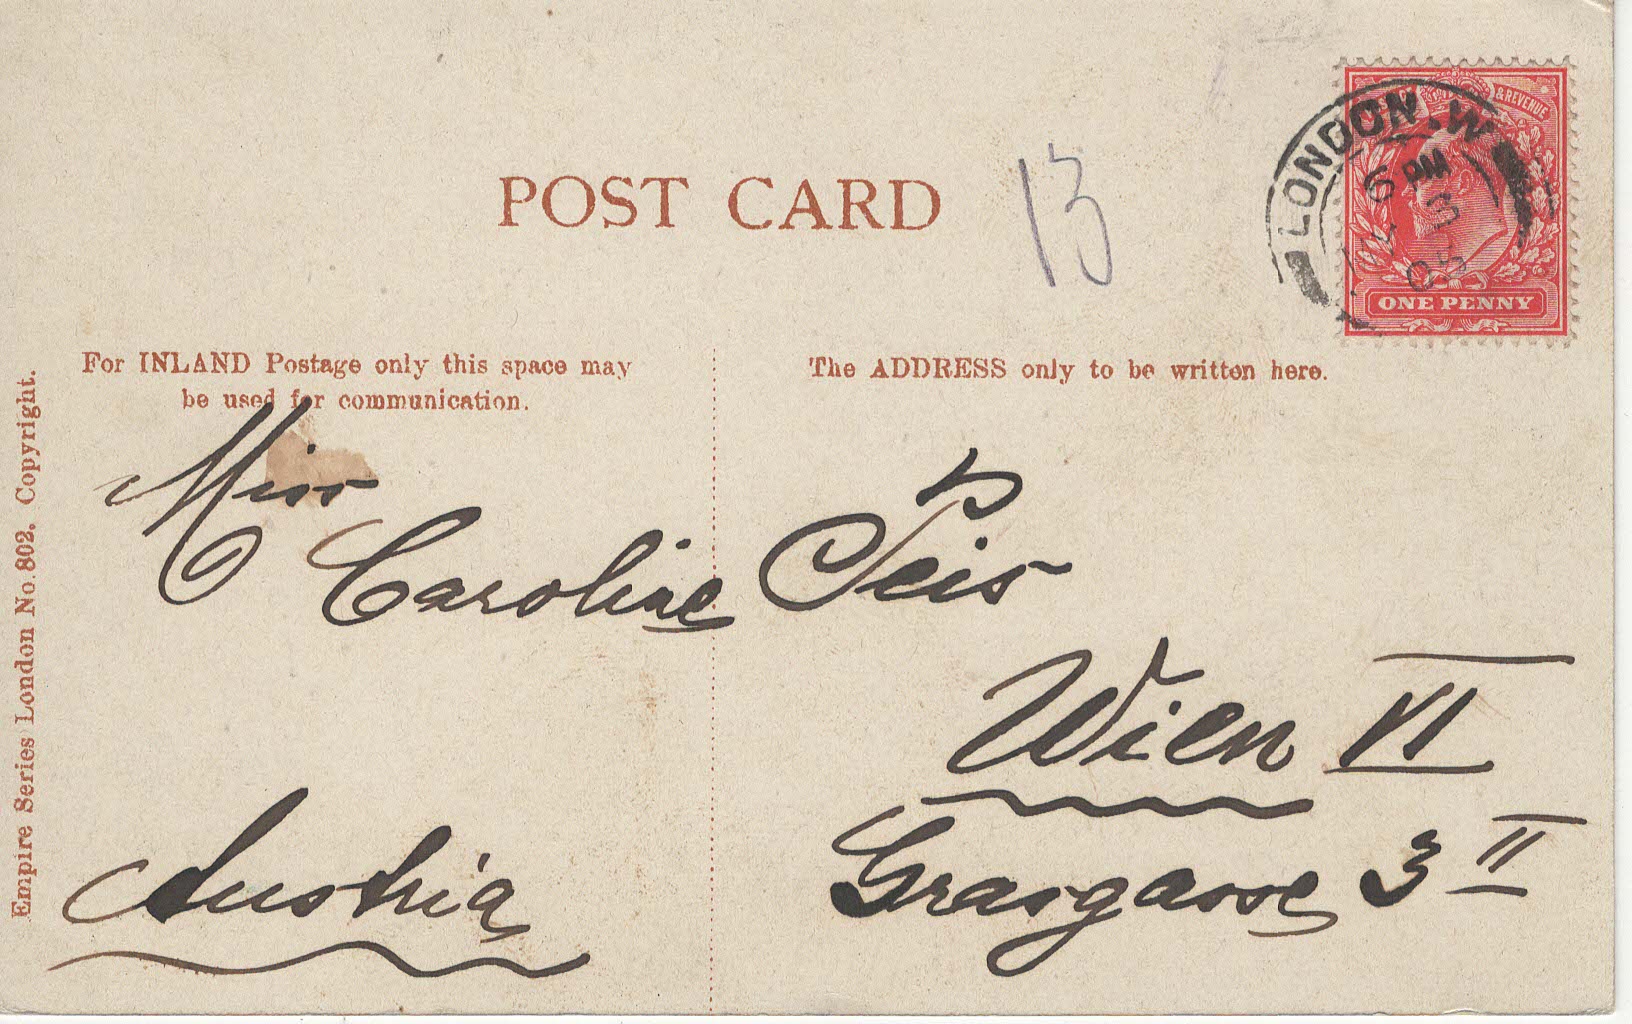 POST CARD
13
LONDON. W
6 PM
05
& REVENUE
ONE PENNY
For INLAND Postage only this space may
be used for communication.
The ADDRESS only to be written here.
Empire Series London No. 802. Copyright.
Miss
Caroline Seis
Wien VI
Grasgasse 3 II
Austria